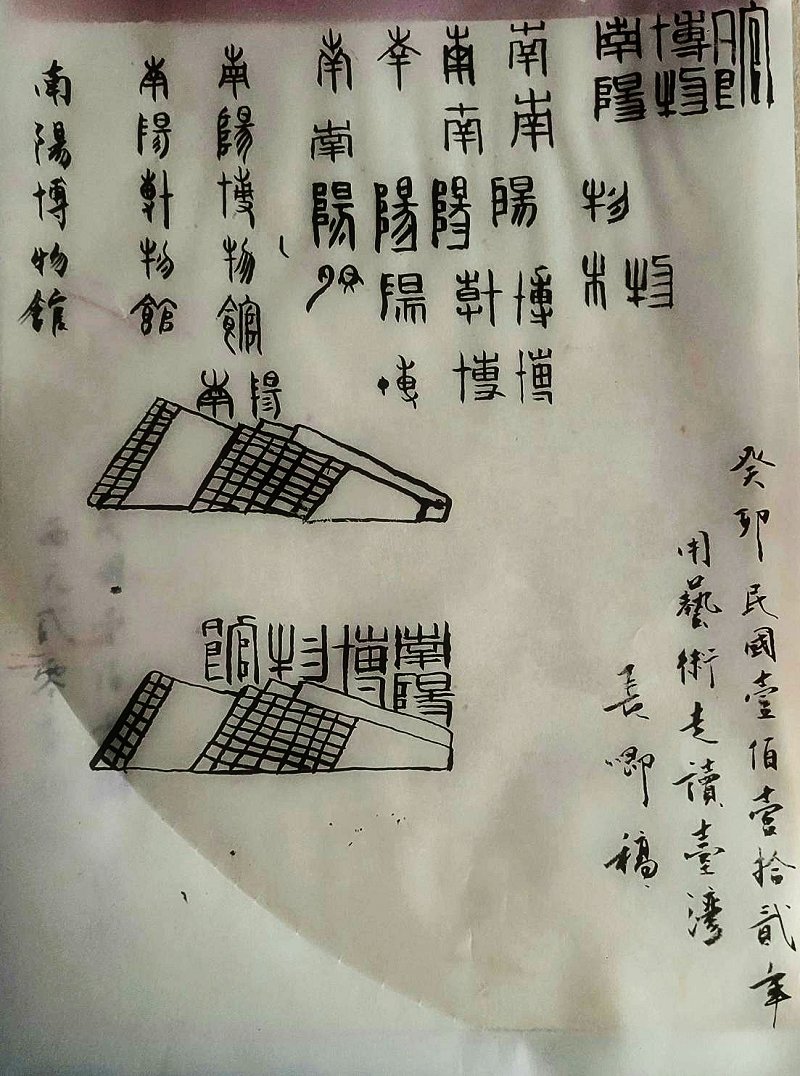 南陽
博物
館
物
物
南南陽博博
南南陽博
陽陽
南南陽
南陽博物館
南陽博物館
南陽博物館
南陽
南陽博物館
癸卯民國壹佰壹拾貳年
用藝術走讀臺灣
長唧稿